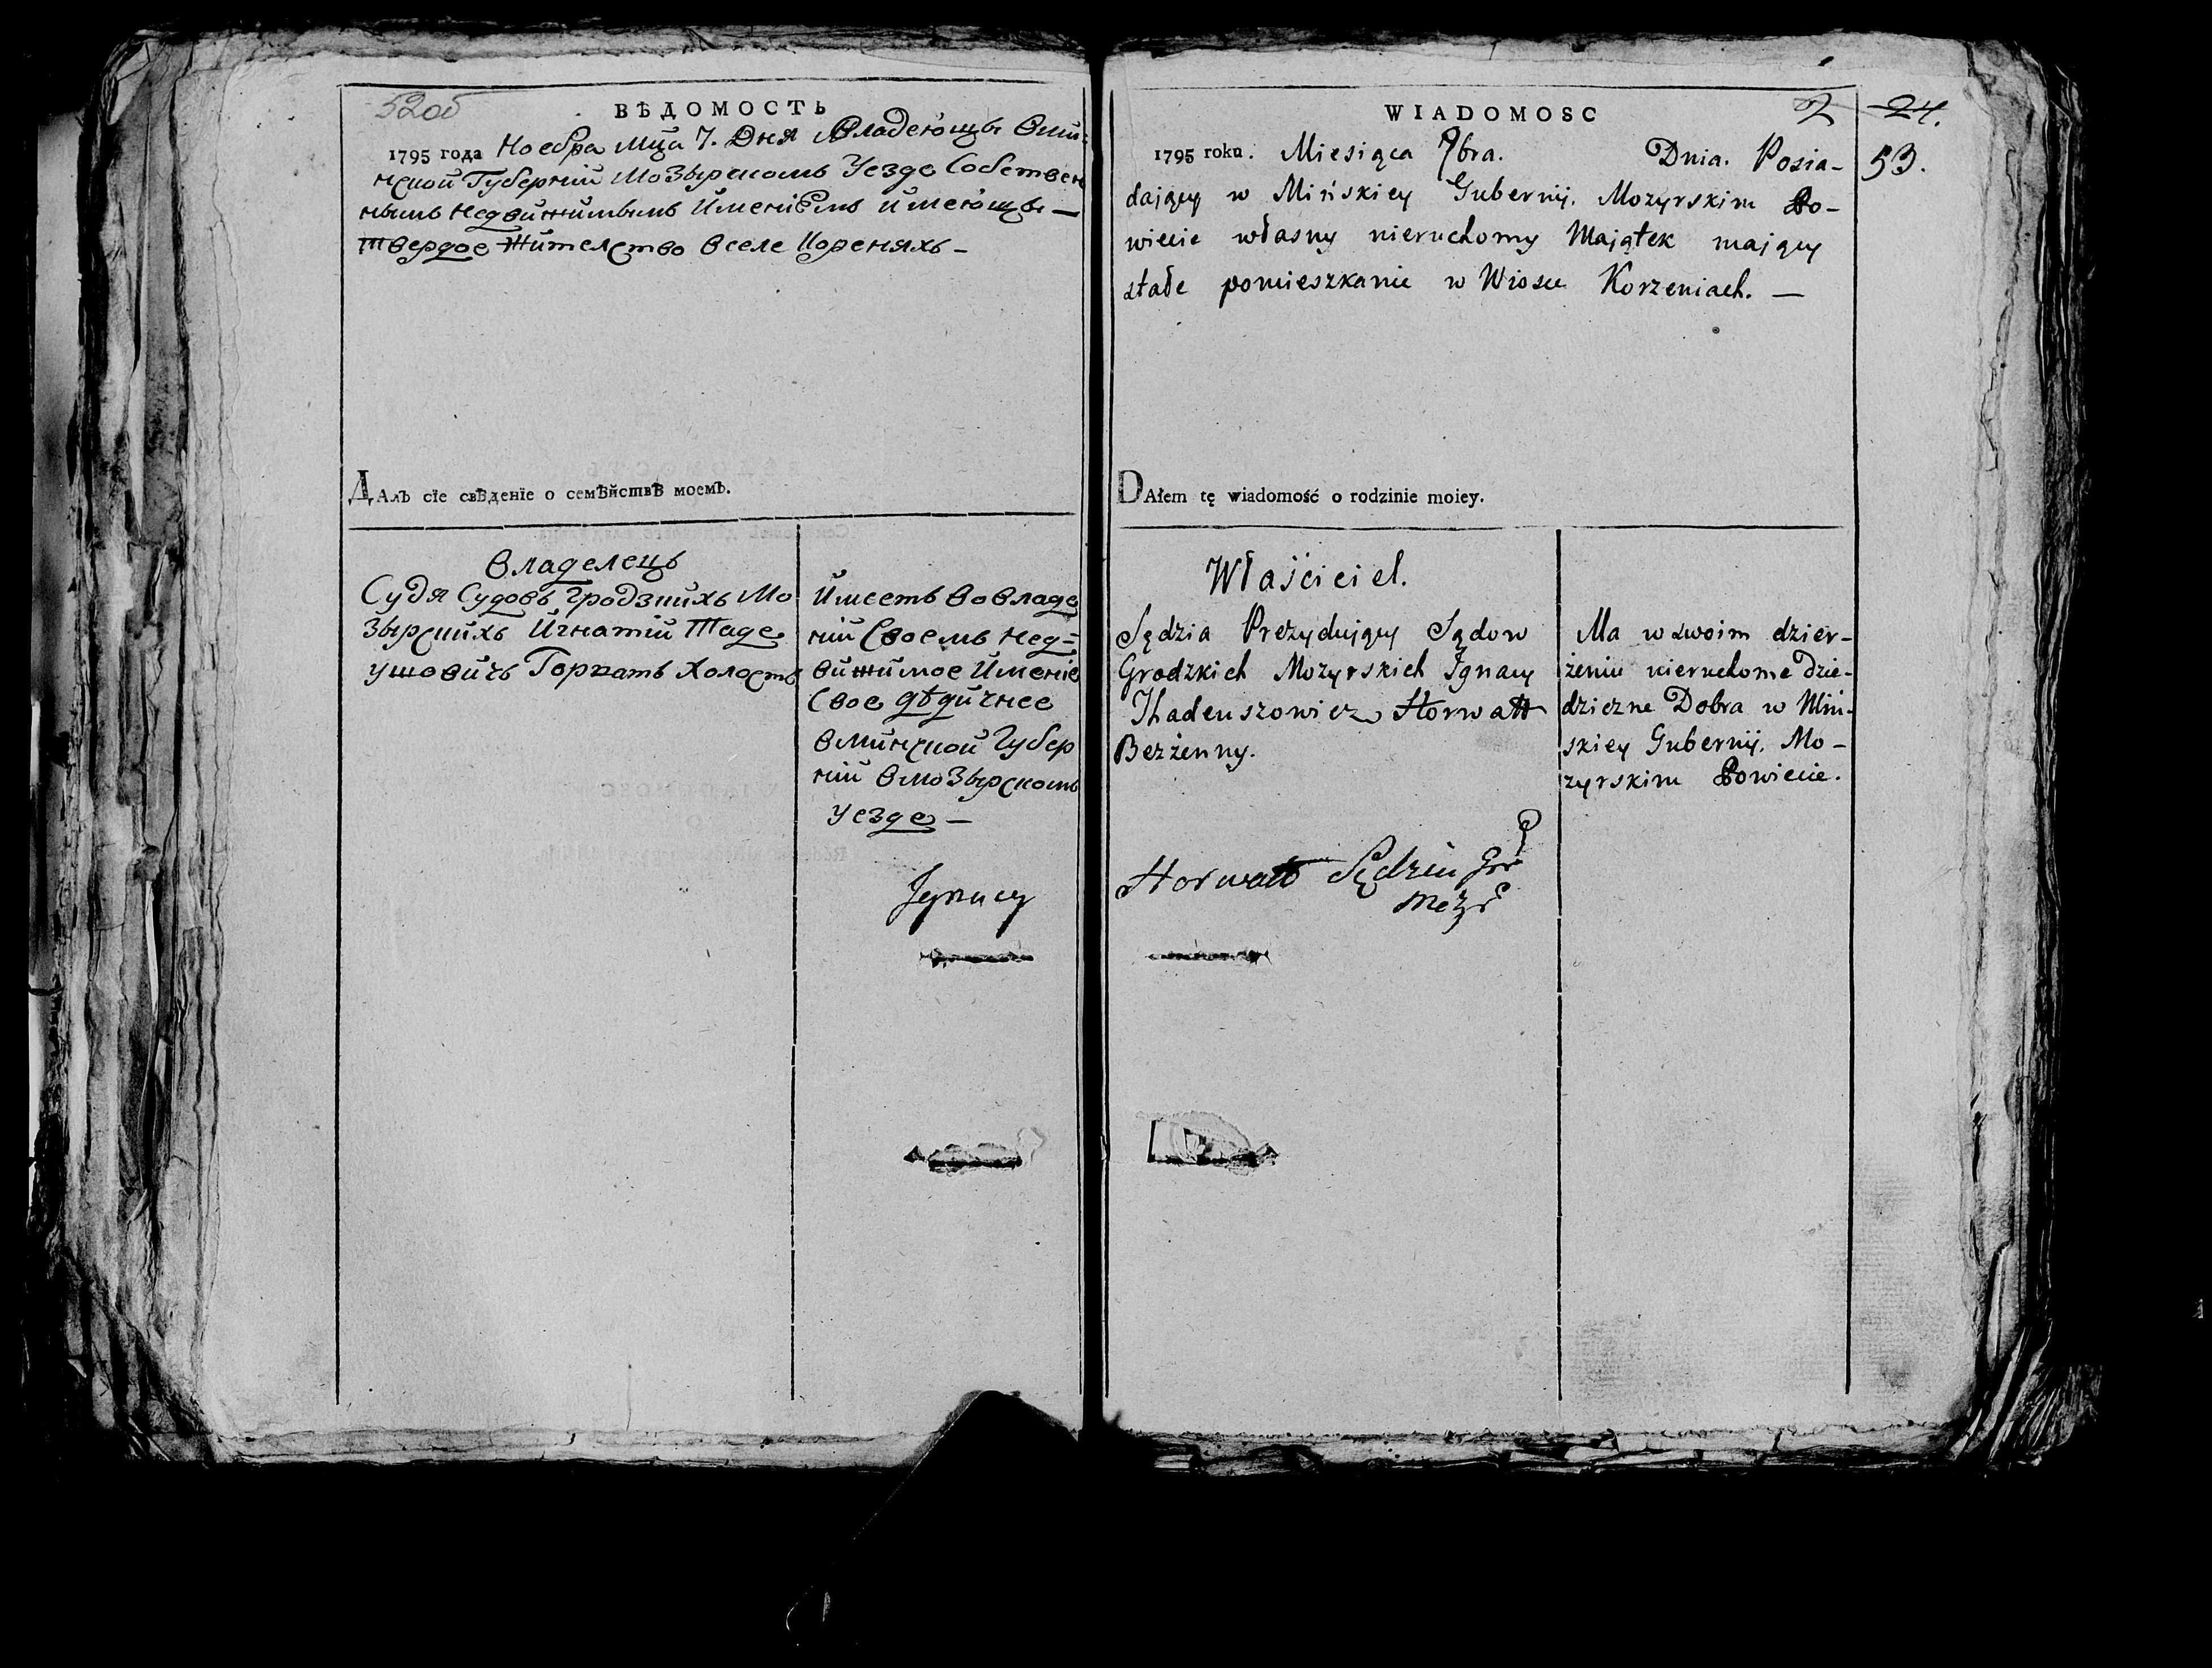 52об
ВѢДОМОСТЬ
1795 года Ноебра мца 7. Дня Владеющы Вми=
нской Губерний Мозырском Уезде Собствен
ным недвижимым Имениемъ имеющы —
Твердое Жителство Вселе Кореняхъ —
ДАлЪ сїе свѢденїе о семѢйствѢ моемЪ.
Владелець
Судя Судовъ Гродзкихъ Мо
зырскихъ Игнатий Таде
ушовичъ Горватъ Холостъ
Имеетъ Вовладе
ний Своемъ Нед=
вижимое Имение
Свое дѣдичнее
Вминской Губер
ний Вмозырскомъ
Уезде —
Ignacy
WIADOMOSC
2 24.
53.
1795 roku. Miesiąca 9bra. Dnia. Posia-
dający w Mińskiey Gubernij. Mozyrskim Po-
wiecie własny nieruchomy Majątek mający
stałe pomieszkanie w Wiosce Korzeniach. —
DAłem tę wiadomość o rodzinie moiey.
Właściciel.
Sędzia Prezydujący Sądow
Grodzkich Mozyrskich Ignacy
Thadeuszowicz Horwatt
Bezżenny.
Ma w swoim dzier-
żeniu nieruchome Dzie-
dziczne Dobra w Miń-
skiey Gubernij. Mo-
zyrskim Powiecie.
Horwatt Sędzia Gr
Mozr